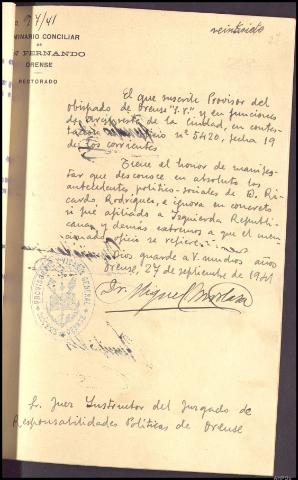 97/41
veintiocho
SEMINARIO CONCILIAR
DE
SAN FERNANDO
ORENSE
RECTORADO
El que suscribe Provisor del
obispado de Orense "S.V." y en funciones
de Arcipreste de la Ciudad, en contes-
tación oficio nº 5420, fecha 19
de los corrientes
Tiene el honor de manifes-
tar que desconoce en absoluto los
antecedentes político-sociales de D. Ri-
cardo Rodríguez, e ignora en concreto
si fué afiliado a Izquierda Republi-
cana y demás extremos a que el men-
cionado oficio se refiere.
Dios guarde a V. muchos años
Orense, 27 de septiembre de 1941
Dr. Miguel
Sr. Juez Instructor del Juzgado de
Responsabilidades Políticas de Orense